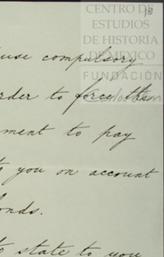 CENTRO DE
ESTUDIOS
DE HISTORIA
DE MEXICO
FUNDACIÓN
use compulsory
order to force the
ment to pay
to you on account
onds.
to state to you